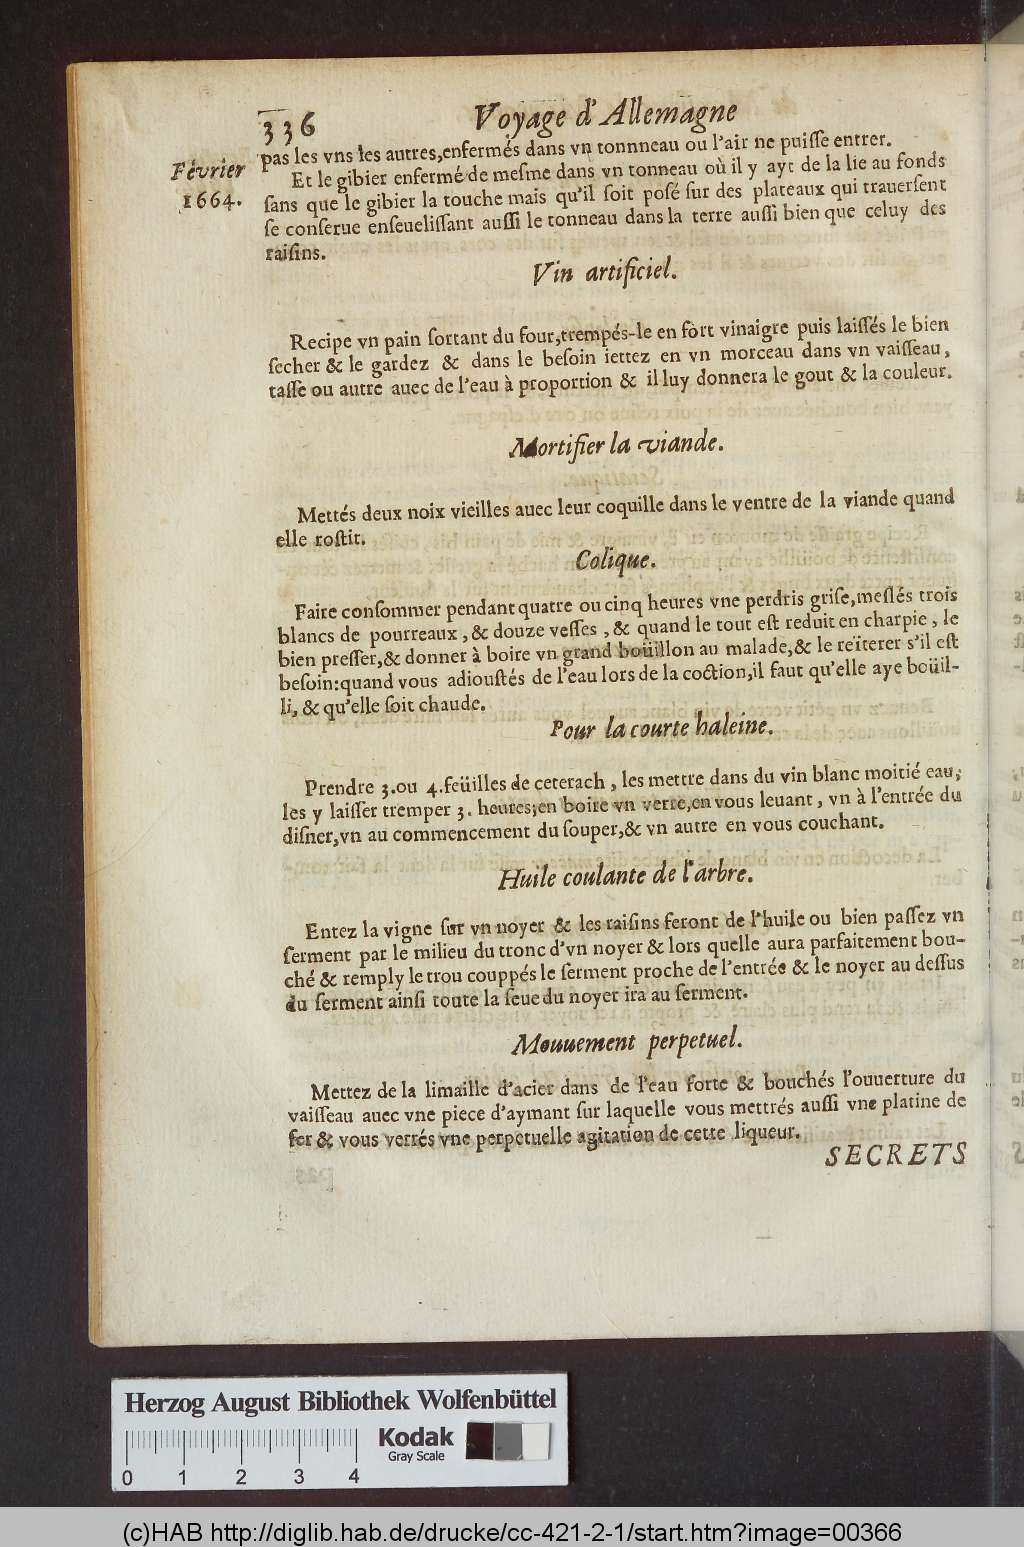 336 Voyage d'Allemagne
Février
1664.
pas les vns les autres, enfermés dans vn tonnneau ou l'air ne puiſſe entrer.
Et le gibier enfermé de meſme dans vn tonneau où il y ayt de la lie au fonds
ſans que le gibier la touche mais qu'il ſoit poſé ſur des plateaux qui trauerſent
ſe conſerue enſeueliſſant auſſi le tonneau dans la terre auſſi bien que celuy des
raiſins.
Vin artificiel.
Recipe vn pain ſortant du four, trempés-le en fòrt vinaigre puis laiſſés le bien
ſecher & le gardez & dans le beſoin iettez en vn morceau dans vn vaiſſeau,
taſſe ou autre auec de l'eau à proportion & il luy donnera le gout & la couleur.
Mortifier la viande.
Mettés deux noix vieilles auec leur coquille dans le ventre de la viande quand
elle roſtit.
Colique.
Faire conſommer pendant quatre ou cinq heures vne perdris griſe, meſlés trois
blancs de pourreaux, & douze veſſes, & quand le tout eſt reduit en charpie, le
bien preſſer, & donner à boire vn grand boüillon au malade, & le reïterer s'il eſt
beſoin: quand vous adiouſtés de l'eau lors de la coction, il faut qu'elle aye boüil-
li, & qu'elle ſoit chaude.
Pour la courte haleine.
Prendre 3. ou 4. feüilles de ceterach, les mettre dans du vin blanc moitié eau,
les y laiſſer tremper 3. heures; en boire vn verre, en vous leuant, vn à l'entrée du
diſner, vn au commencement du ſouper, & vn autre en vous couchant.
Huile coulante de l'arbre.
Entez la vigne ſur vn noyer & les raiſins feront de l'huile ou bien paſſez vn
ſerment par le milieu du tronc d'vn noyer & lors quelle aura parfaitement bou-
ché & remply le trou couppés le ſerment proche de l'entrée & le noyer au deſſus
du ſerment ainſi toute la ſeue du noyer ira au ſerment.
Mouuement perpetuel.
Mettez de la limaille d'acier dans de l'eau forte & bouchés l'ouuerture du
vaiſſeau auec vne piece d'aymant ſur laquelle vous mettrés auſſi vne platine de
fer & vous verrés vne perpetuelle agitation de cette liqueur.
SECRETS
Herzog August Bibliothek Wolfenbüttel
Kodak
Gray Scale
0 1 2 3 4
(c)HAB http://diglib.hab.de/drucke/cc-421-2-1/start.htm?image=00366